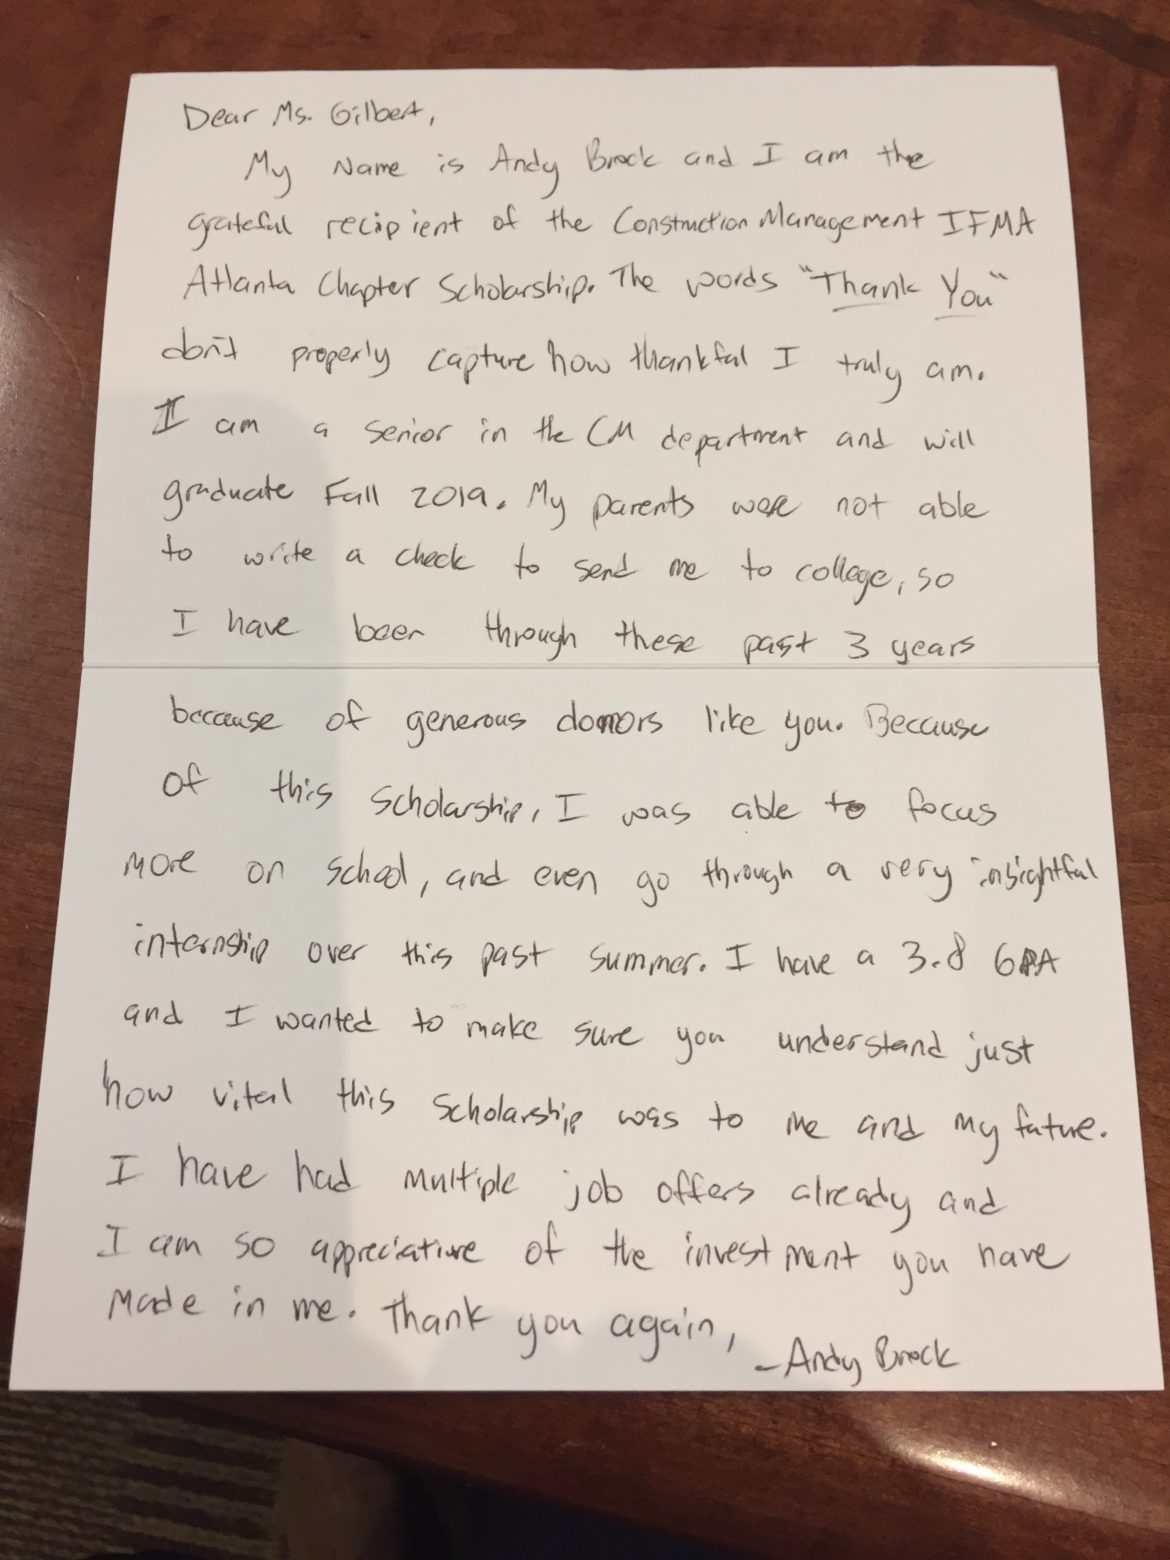 Dear Ms. Gilbert,
My Name is Andy Brock and I am the
grateful recipient of the Construction Management IFMA
Atlanta Chapter Scholarship. The words "Thank You"
don't properly capture how thankful I truly am.
I am a senior in the CM department and will
graduate Fall 2019. My parents were not able
to write a check to send me to college, so
I have been through these past 3 years
because of generous donors like you. Because
of this scholarship, I was able to focus
more on school, and even go through a very insightful
internship over this past summer. I have a 3.8 GPA
and I wanted to make sure you understand just
how vital this scholarship was to me and my future.
I have had multiple job offers already and
I am so appreciative of the investment you have
made in me. Thank you again,
- Andy Brock